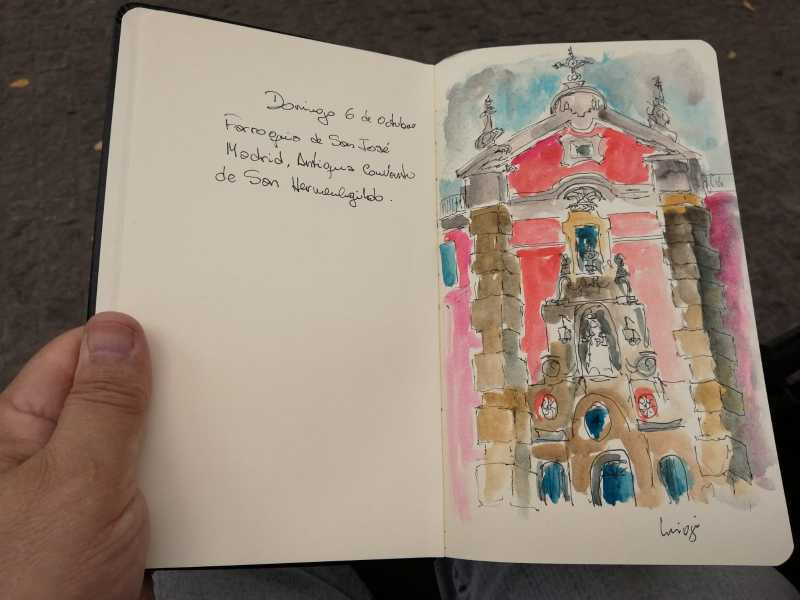 Domingo 6 de Octubre
Parroquia de San José
Madrid, Antiguo Convento
de San Hermenegildo.